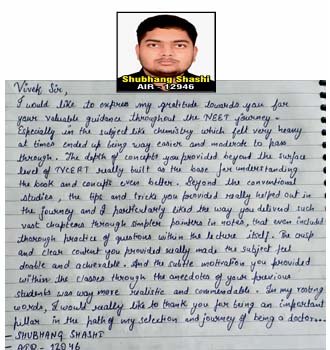 Shubhang Shashi
AIR - 12946
Vivek Sir,
I would like to express my gratitude towards you for
your valuable guidance throughout the NEET journey.
Especially in the subject like chemistry which felt very heavy
at times ended up being way easier and moderate to pass
through. The depth of concepts you provided beyond the surface
level of NCERT really built as the base for understanding
the book and concepts even better. Beyond the conventional
studies, the tips and tricks you provided really helped out in
the journey and I particularly liked the way you delivered such
vast chapters through simpler pointers in notes, that even included
thorough practice of questions within the lecture itself. The crisp
and clear content you provided really made the subject feel
doable and achievable. And the subtle motivation you provided
within the classes through the anecdotes of your previous
students was way more realistic and commendable. In my resting
words, I would really like to thank you for being an important
pillar in the path of my selection and journey of being a doctor...
SHUBHANG SHASHI
AIR - 12946